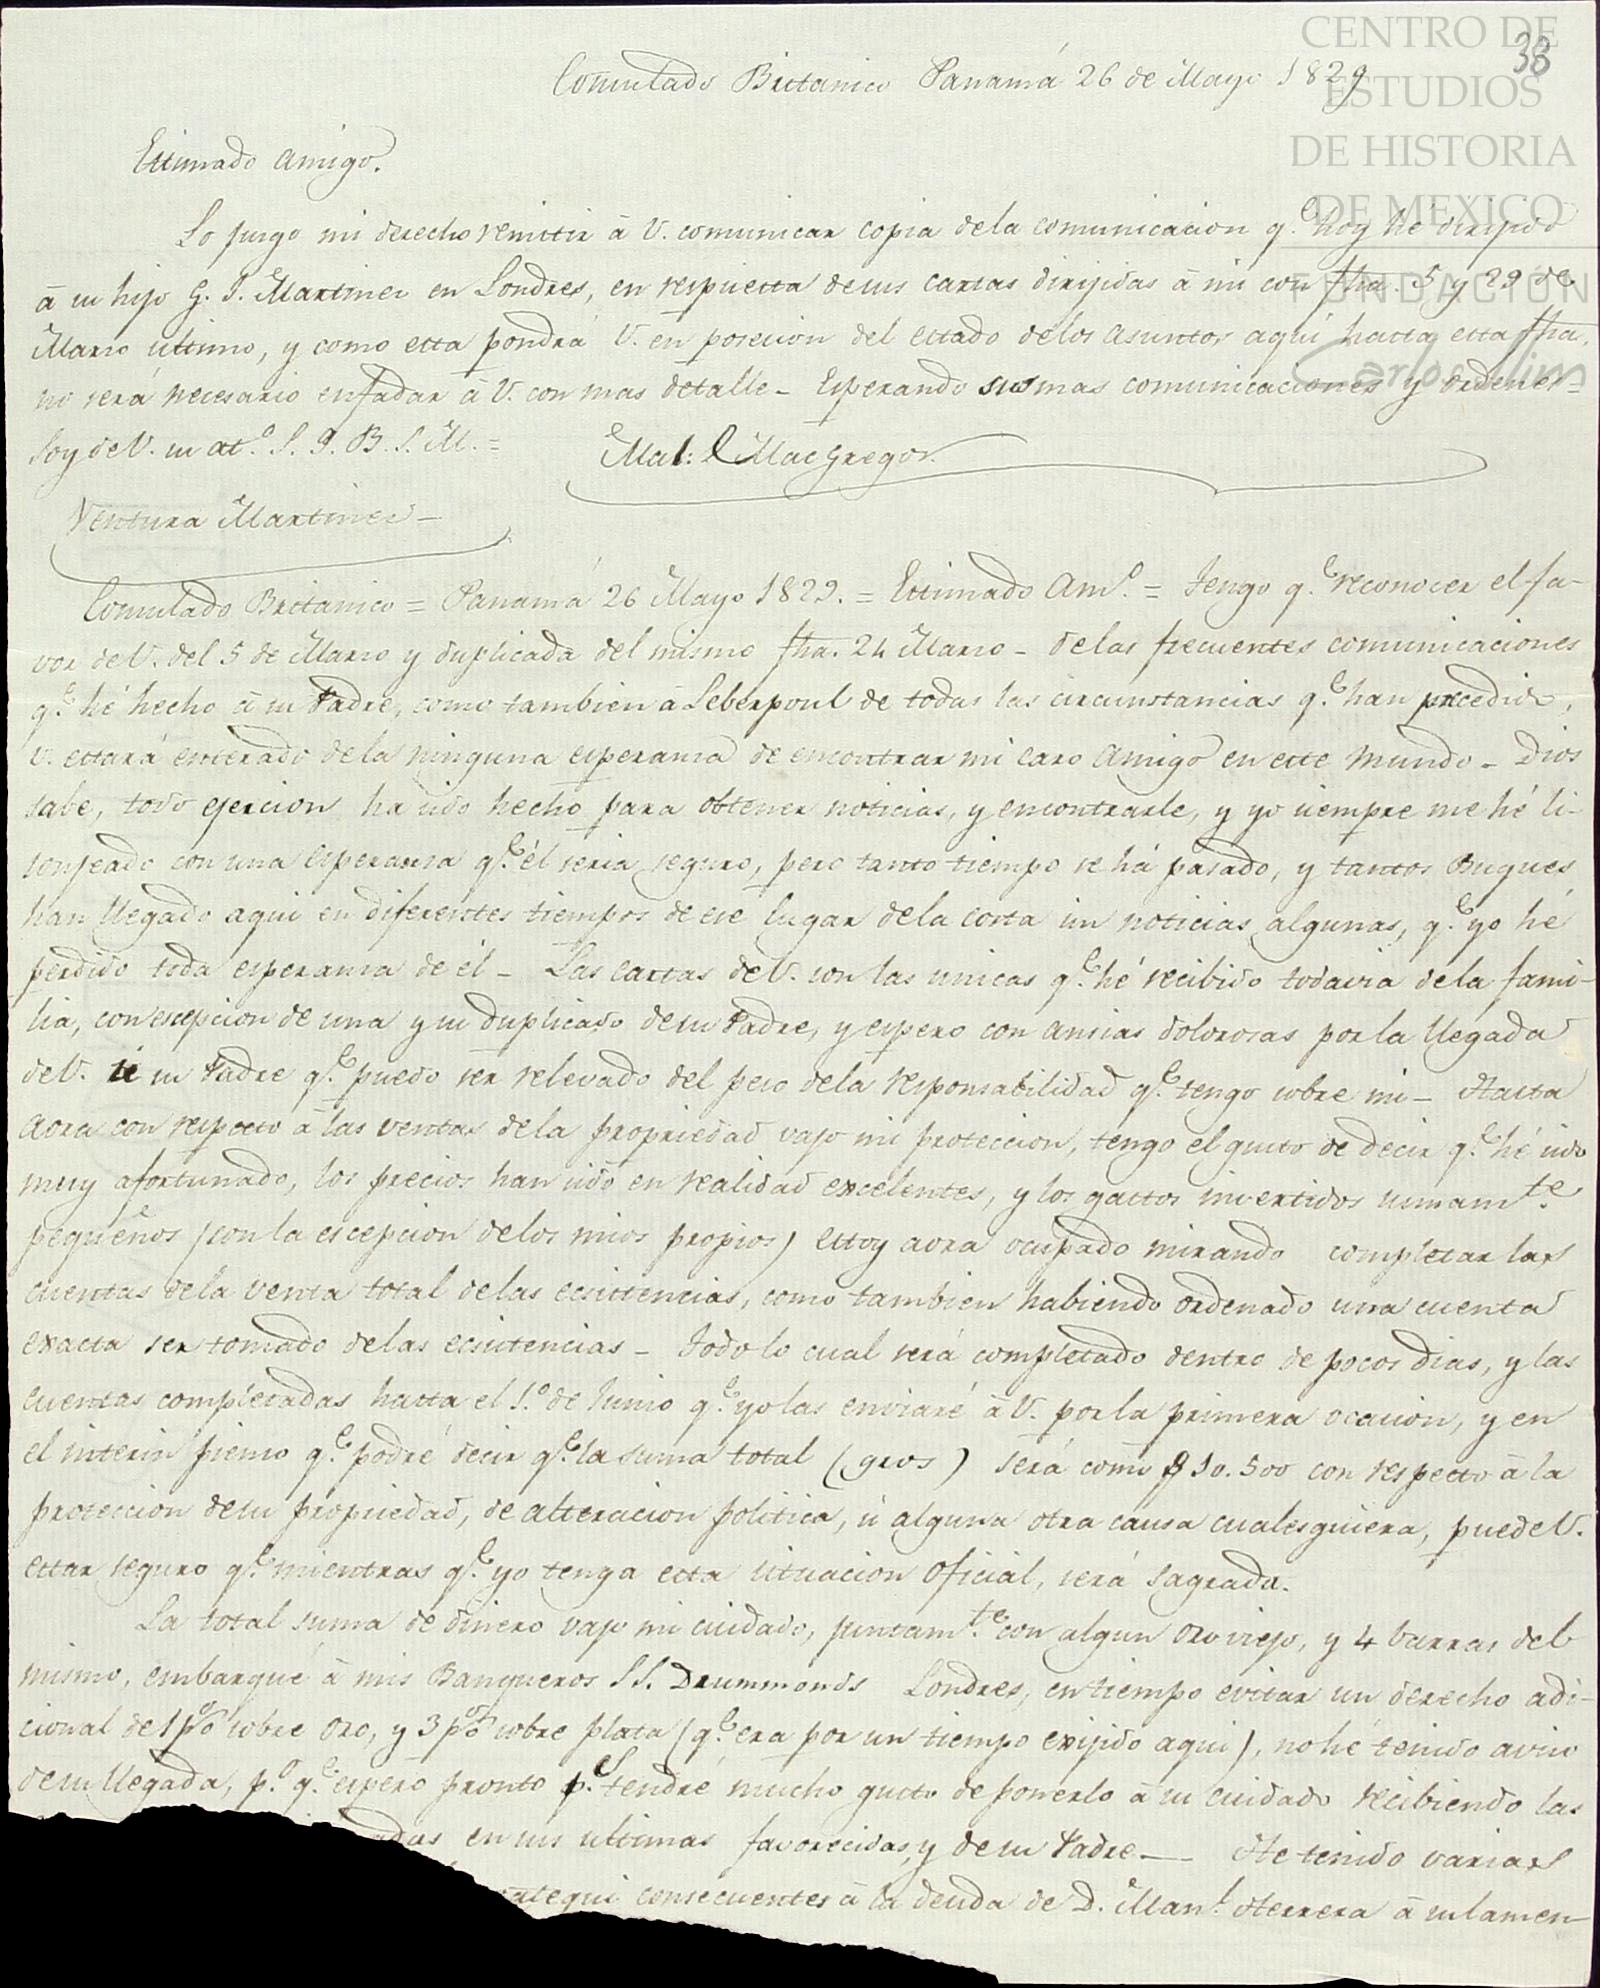 CENTRO DE
ESTUDIOS
DE HISTORIA
DE MEXICO
FUNDACIÓN
Carlos Slim
38
Consulado Britanico Panamá 26 de Mayo 1829
Estimado Amigo.
Lo jusgo mi derecho remitir à V. comunicar copia dela comunicacion q.e hoy hé dirijido
à su hijo G. J. Martinez en Londres, en respuesta desus cartas dirijidas à mi con fha. 5 y 29 de
Marzo ultimo, y como esta pondrá V. en posecion del estado delos asuntos aqui hasta esta fha,
no será necesario enfadar à V. con mas detalle - Esperando sus mas comunicaciones y ordenes =
Soy deV. su at.o S. S. B. S. M. = Mal: MacGregor.
Ventura Martinez -
Consulado Britanico = Panamá 26 Mayo 1829. = Estimado Am.o = Tengo q.e reconocer el fa-
vor deV. del 5 de Marzo y duplicada del mismo fha. 24 Marzo - delas frecuentes comunicaciones
q.e hé hecho à su Padre, como tambien à Leberpoul de todas las circunstancias q.e han precedido,
V. estará enterado dela ninguna esperanza de encontrar mi caro Amigo en este mundo - Dios
sabe, todo ejercion ha sido hecho para obtener noticias, y encontrarle, y yo siempre me hé li-
sonjeado con una esperanza q.e él seria seguro, pero tanto tiempo se há pasado, y tantos Buques
han llegado aqui en diferentes tiempos de ese lugar dela costa sin noticias algunas, q.e yo hé
perdido toda esperanza de él - Las cartas deV. son las unicas q.e hé recibido todavia dela fami-
lia, con escepcion de una y su duplicado desu Padre, y espero con ansias dolorosas por la llegada
deV. ú su Padre q.e puedo ser relevado del peso dela responsabilidad q.e tengo sobre mi - Hasta
aora con respecto à las ventas dela propriedad vajo mi proteccion, tengo el gusto de decir q.e hé sido
muy afortunado, los precios han sido en realidad excelentes, y los gastos invertidos sumam.te
pequeños (con la escepcion delos mios propios) estoy aora ocupado mirando completar las
cuentas dela venta total delas ecsistencias, como tambien habiendo ordenado una cuenta
exacta ser tomado delas ecsistencias - Todo lo cual será completado dentro de pocos dias, y las
cuentas completadas hasta el 1.o de Junio q.e yo las enviaré à V. por la primera ocacion, y en
el interin pienso q.e podré decir q.e la suma total (gros) será como $ 10.500 con respecto à la
proteccion desu propriedad, de alteracion politica, ú alguna otra causa cualesquiera, puedeV.
estar seguro q.e mientras q.e yo tenga esta situacion Oficial, será sagrada.
La total suma de dinero vajo mi cuidado, juntam.te con algun Oro viejo, y 4 barras del
mismo, embarqué à mis Banqueros SS. Drummonds Londres, en tiempo evitar un derecho adi-
cional de 1 p% sobre Oro, y 3 p% sobre plata (q.e era por un tiempo exijido aqui), no hé tenido aviso
desu llegada, p.o q.e espero pronto tendré mucho gusto de ponerlo à su cuidado recibiendo las
adas en sus ultimas favorecidas, y desu Padre - He tenido varias
ategui consecuentes à la deuda de D. Man.l Herrera à su lamen-